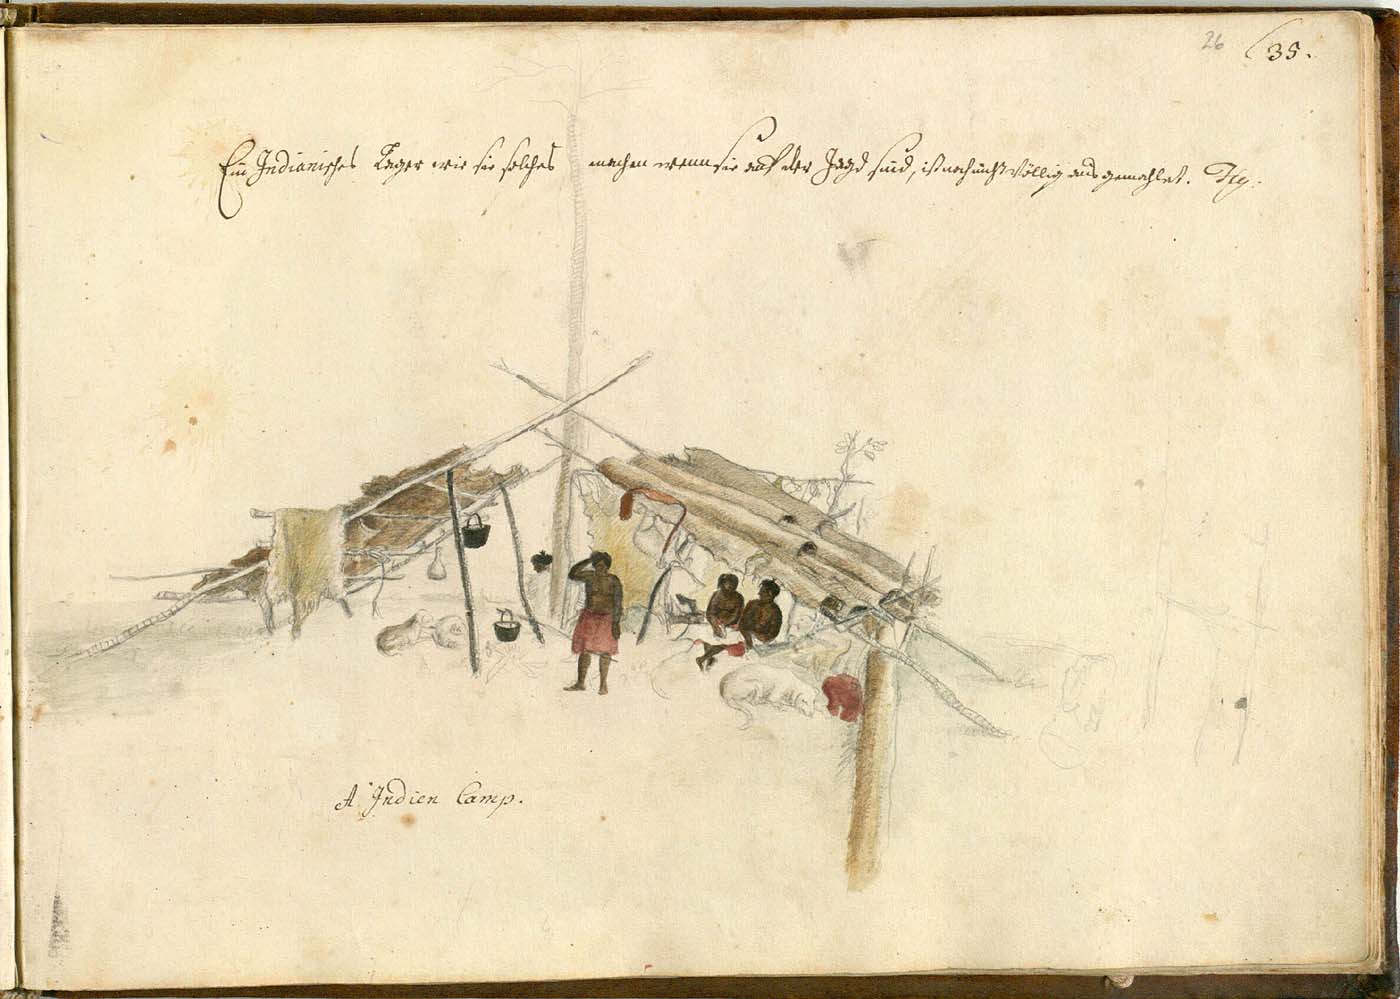 26 (35.
Ein Indianisches Lager wie sie solches machen wenn sie auf der Jagd sind, ist noch nicht völlig aus gemahlet.
A Indien Camp.